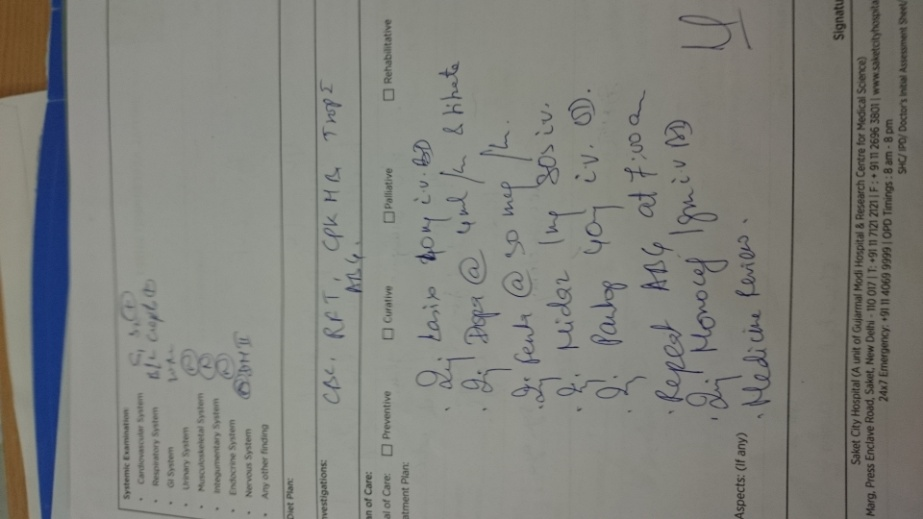 Systemic Examination
• Cardiovascular System S1 S2 (+)
• Respiratory System B/L Crepts (+)
• GI System
• Urinary System
• Musculoskeletal System
• Integumentary System
• Endocrine System
• Nervous System
• Any other finding
Diet Plan:
nvestigations: CBC. RFT, CPK MB TropI
ABG.
an of Care:
al of Care: Preventive Curative Palliative Rehabilitative
atment Plan:
• Inj Lasix 40mg i.v. BD
• Inj Dopa @ 4ml/hr & titrate
• Inj Fenta @ 50 mcg/hr.
• Inj Midaz 1mg SOS iv.
• Inj Pantop 40mg i.v. OD.
• Repeat ABG at 7:00am
• Inj Monocef 1gm iv BD
• Medicine Review.
Aspects: (If any)
Signatu
Saket City Hospital (A unit of Gujarmal Modi Hospital & Research Centre for Medical Science)
Marg, Press Enclave Road, Saket, New Delhi - 110 017 | T: +91 11 7121 2121 | F : + 91 11 2696 3801 | www.saketcityhospita
24x7 Emergency: +91 11 4069 9999 | OPD Timings : 8 am - 8 pm
SHC/ IPD/ Doctor's Initial Assessment Sheet/